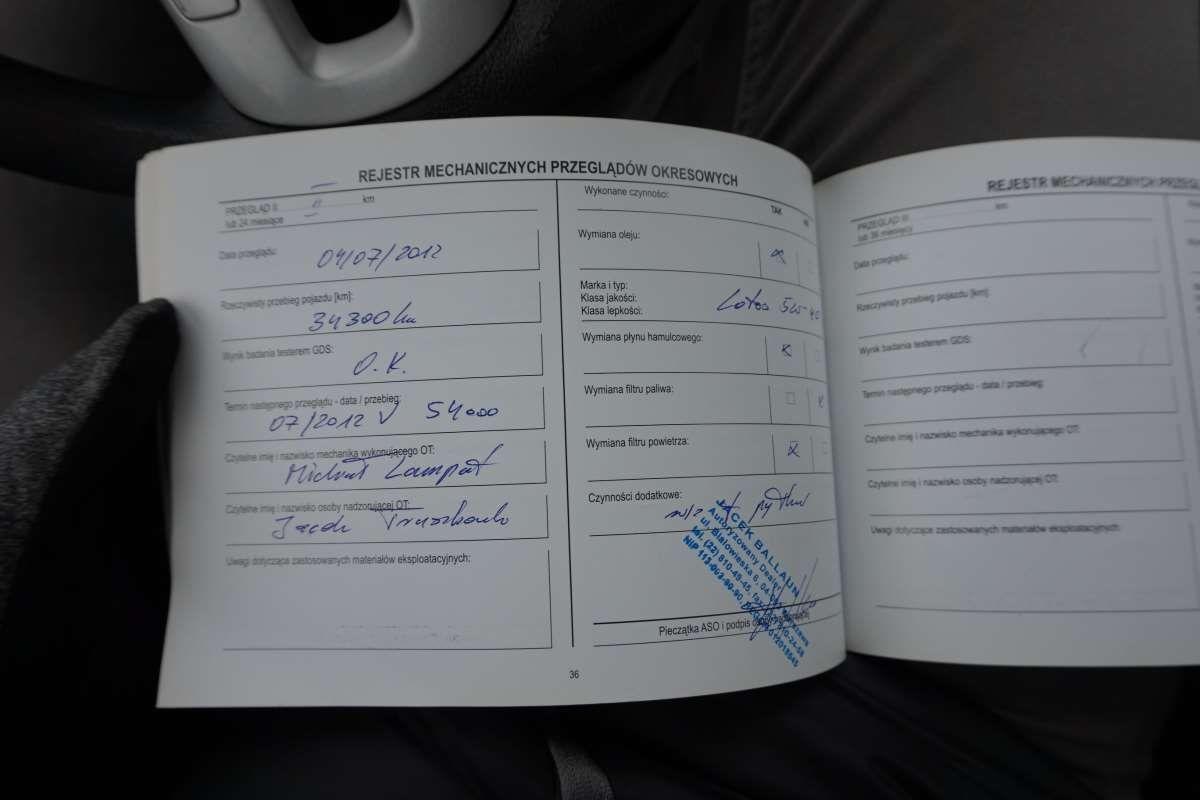 REJESTR MECHANICZNYCH PRZEGLĄDÓW OKRESOWYCH
PRZEGLĄD II km
lub 24 miesiące
Data przeglądu:
04/07/2012
Rzeczywisty przebieg pojazdu [km]:
34300 km
Wynik badania testerem GDS:
O.K.
Termin następnego przeglądu - data / przebieg:
07/2012 V 54000
Czytelne imię i nazwisko mechanika wykonującego OT:
Michał Lampat
Czytelne imię i nazwisko osoby nadzorującej OT:
Jacek
Uwagi dotyczące zastosowanych materiałów eksploatacyjnych:
Wykonane czynności:
TAK
Wymiana oleju:
Marka i typ:
Klasa jakości:
Klasa lepkości:
Lotos 5W-40
Wymiana płynu hamulcowego:
Wymiana filtru paliwa:
Wymiana filtru powietrza:
Czynności dodatkowe:
JACEK BALLAUN
Autoryzowany Dealer
ul. Białowieska 6, 04-
tel. (22) 810-45-45, fax
NIP 113-063-90-90,
Pieczątka ASO i podpis
36
REJESTR MECHANICZNYCH
PRZEGLĄD III km
lub 36 miesięcy
Data przeglądu:
Rzeczywisty przebieg pojazdu [km]:
Wynik badania testerem GDS:
Termin następnego przeglądu - data / przebieg:
Czytelne imię i nazwisko mechanika wykonującego OT:
Czytelne imię i nazwisko osoby nadzorującej OT:
Uwagi dotyczące zastosowanych materiałów eksploatacyjnych: